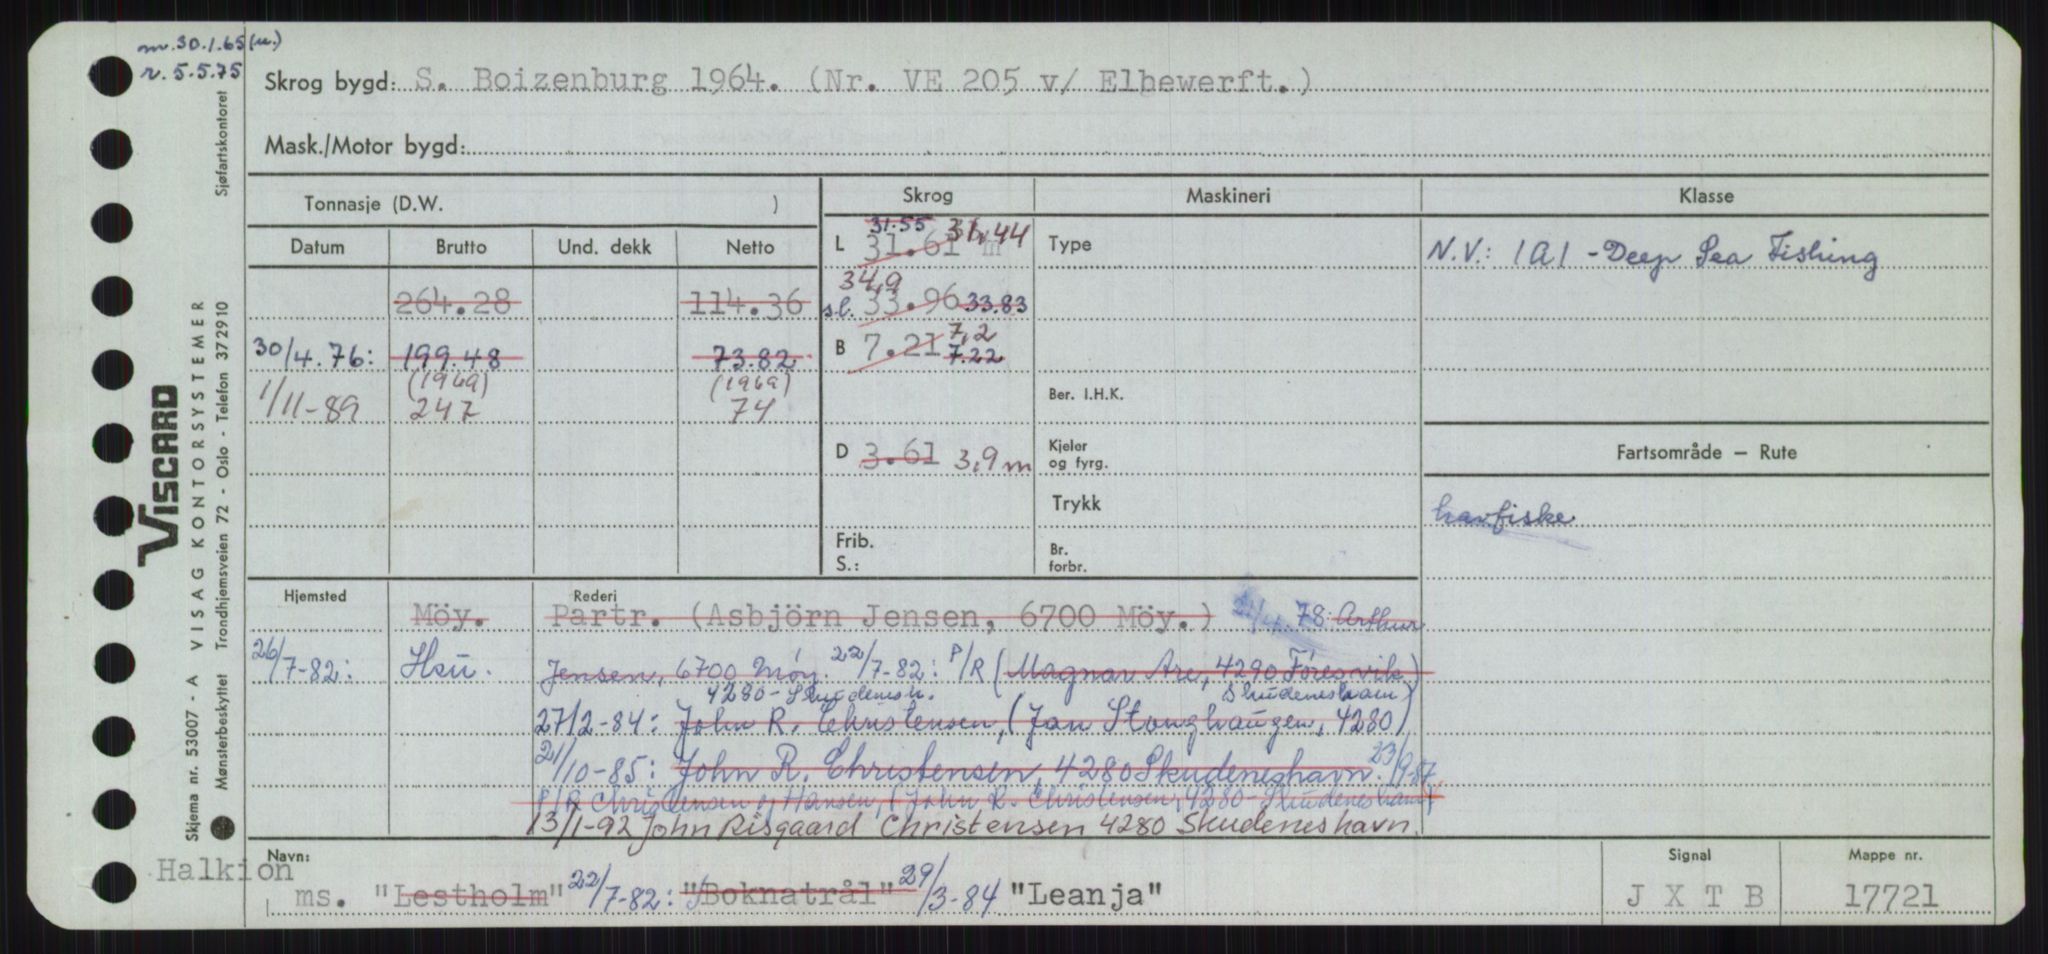 m. 30.1.65 (u.)
r. 5.5.75
Skrog bygd: S. Boizenburg 1964. (Nr. VE 205 v/ Elbewerft.)
Mask./Motor bygd:
Tonnasje (D.W. )
Skrog
Maskineri
Klasse
Datum Brutto Und. dekk Netto
L 31.61 m 31.55 31,44
Type
N.V.: 1A1 - Deep Sea Fishing
264.28 114.36
34,9
s.l. 33.96 33.83
30/4.76: 199.48 73.82
B 7.21 7,2
7.22
(1969) (1969)
1/11-89 247 74
Ber. I.H.K.
Fartsområde – Rute
D 3.61 3,9 m
Kjeler
og fyrg.
Trykk
havfiske
Frib.
S.:
Br.
forbr.
Hjemsted Rederi
Möy. Partr. (Asbjörn Jensen, 6700 Möy.) 78: Arthur
26/7-82: Hsu. Jensen, 6700 Möy. 22/7-82: P/R (Magnar Are, 4290 Föresvik)
4280-Skudenesh. Skudeneshavn)
27/2-84: John R. Christensen, (Jan Stonghaugen, 4280)
21/10-85: John R. Christensen, 4280 Skudeneshavn. 23/9-87
P/R Christensen og Hansen, (John R. Christensen, 4280-Skudeneshavn)
13/1-92 John Risgaard Christensen 4280 Skudeneshavn
Navn:
Halkion
ms. "Lestholm" 22/7-82: "Boknatrål" 29/3-84 "Leanja"
Signal
J X T B
Mappe nr.
17721
VISCARD
VISAG KONTORSYSTEMER
Skjema nr. 53007 - A
Mønsterbeskyttet Trondhjemsveien 72 - Oslo - Telefon 372910
Sjøfartskontoret